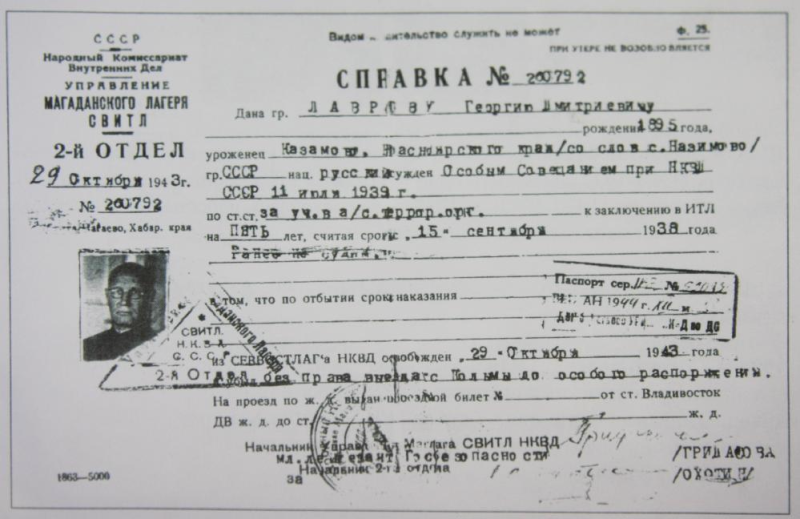 СССР
Народный Комиссариат
Внутренних Дел
УПРАВЛЕНИЕ
МАГАДАНСКОГО ЛАГЕРЯ
СВИТЛ
2-й ОТДЕЛ
29 Октября 1943г.
№ 200792
Нагаево, Хабар. края
Видом на жительство служить не может
Ф. 25.
ПРИ УТЕРЕ НЕ ВОЗОБНОВЛЯЕТСЯ
СПРАВКА № 200792
Дана гр. ЛАВРОВУ Георгию Дмитриевичу
рождения 1895 года,
уроженец Казамово, Красноярского края/со слов с. Назимово/
гр. СССР нац. русский осужден Особым Совещанием при НКВД
СССР 11 июля 1939 г.
по ст.ст. за уч. в а/с. террор. орг. к заключению в ИТЛ
на ПЯТЬ лет, считая срок с 15- сентября 1938 года
Ранее не судим.
в том, что по отбытии срока наказания
Паспорт сер. №
АН 1944 г.
из СЕВВОСТЛАГ'а НКВД освобожден 29-Октября 1943 года
без права выезда с Колымы до особого распоряжения.
На проезд по ж. выдан проездной билет № от ст. Владивосток
ДВ ж. д. до ст. ж. д.
СВИТЛ
Н.К.В.Д.
С.С.С.Р.
2-й Отдел
Магаданского Лагеря
Начальник Маглага СВИТЛ НКВД
мл. лейтенант Госбезопасности /ГРИДАСОВА
Начальник 2-го отдела
за /ОХОТИН/
1863—5000